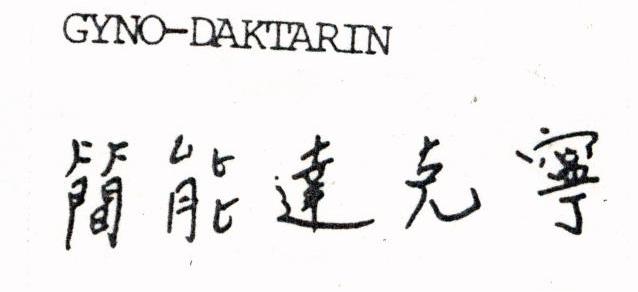 GYNO-DAKTARIN
簡能達克寧